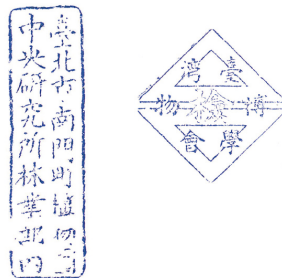 臺北市南門町植物園
中央研究所林業部內
臺灣
博檢物
學會